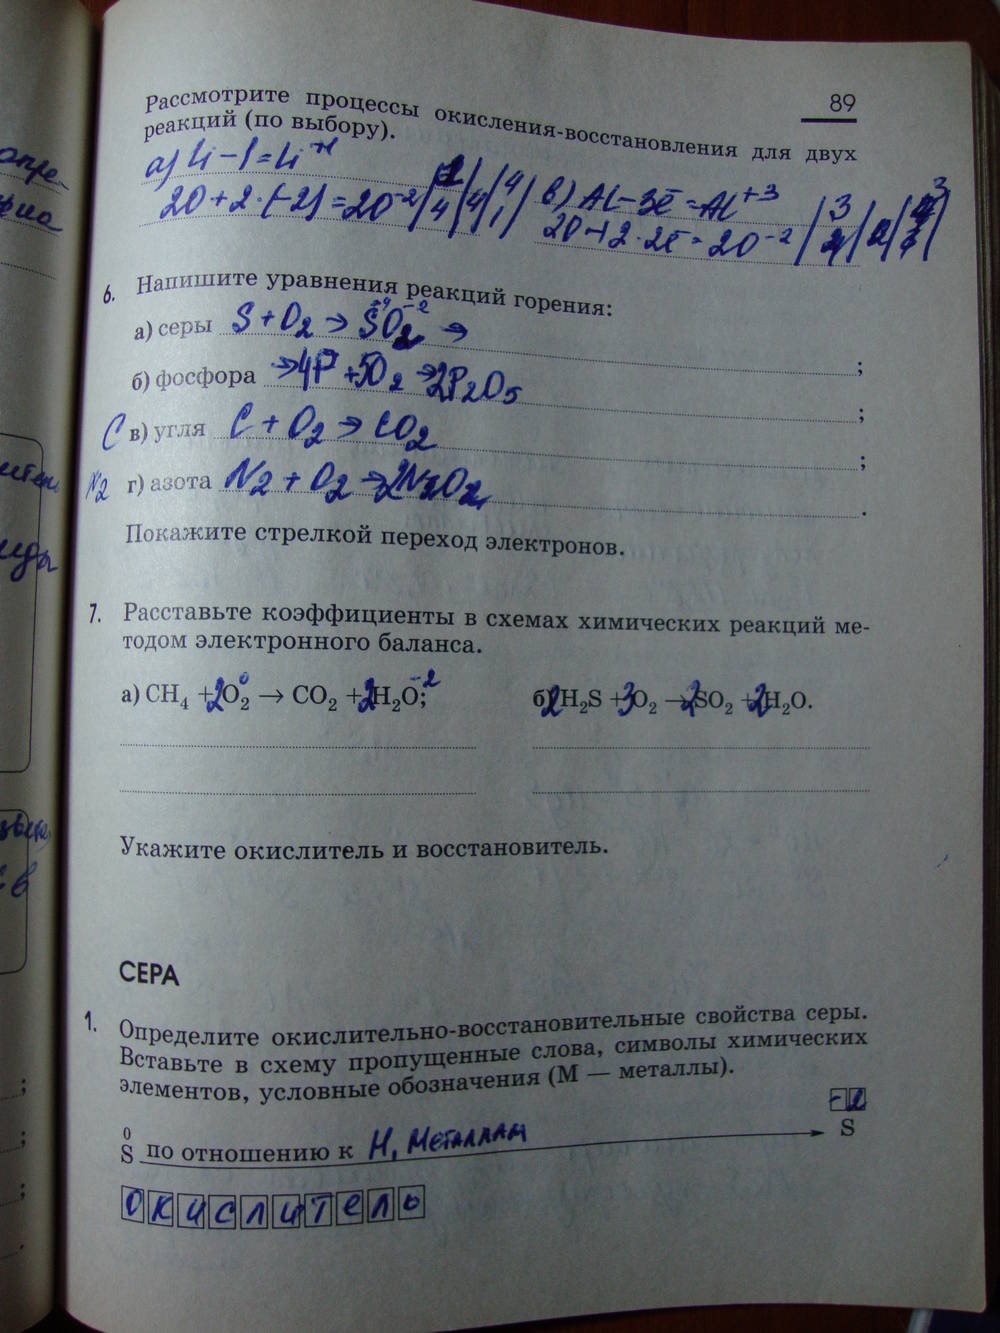 89
Рассмотрите процессы окисления-восстановления для двух
реакций (по выбору).
а) Li – 1 = Li +1
2O + 2·(-2) = 2O -2 / 4 / 4 / 1
в) Al – 3ē = Al +3 / 3
2O + 2·2ē = 2O -2
6. Напишите уравнения реакций горения:
а) серы S + O2 → S+4O2-2 →;
б) фосфора → 4P + 5O2 → 2P2O5;
C в) угля C + O2 → CO2;
N2 г) азота N2 + O2 → 2N2O2.
Покажите стрелкой переход электронов.
7. Расставьте коэффициенты в схемах химических реакций ме-
тодом электронного баланса.
а) CH4 + 2O2 0 → CO2 + 2H2O -2; б) 2H2S + 3O2 → 2SO2 + 2H2O.
Укажите окислитель и восстановитель.
СЕРА
1. Определите окислительно-восстановительные свойства серы.
Вставьте в схему пропущенные слова, символы химических
элементов, условные обозначения (М — металлы).
-2
0
S по отношению к H, Металлам S
окислитель